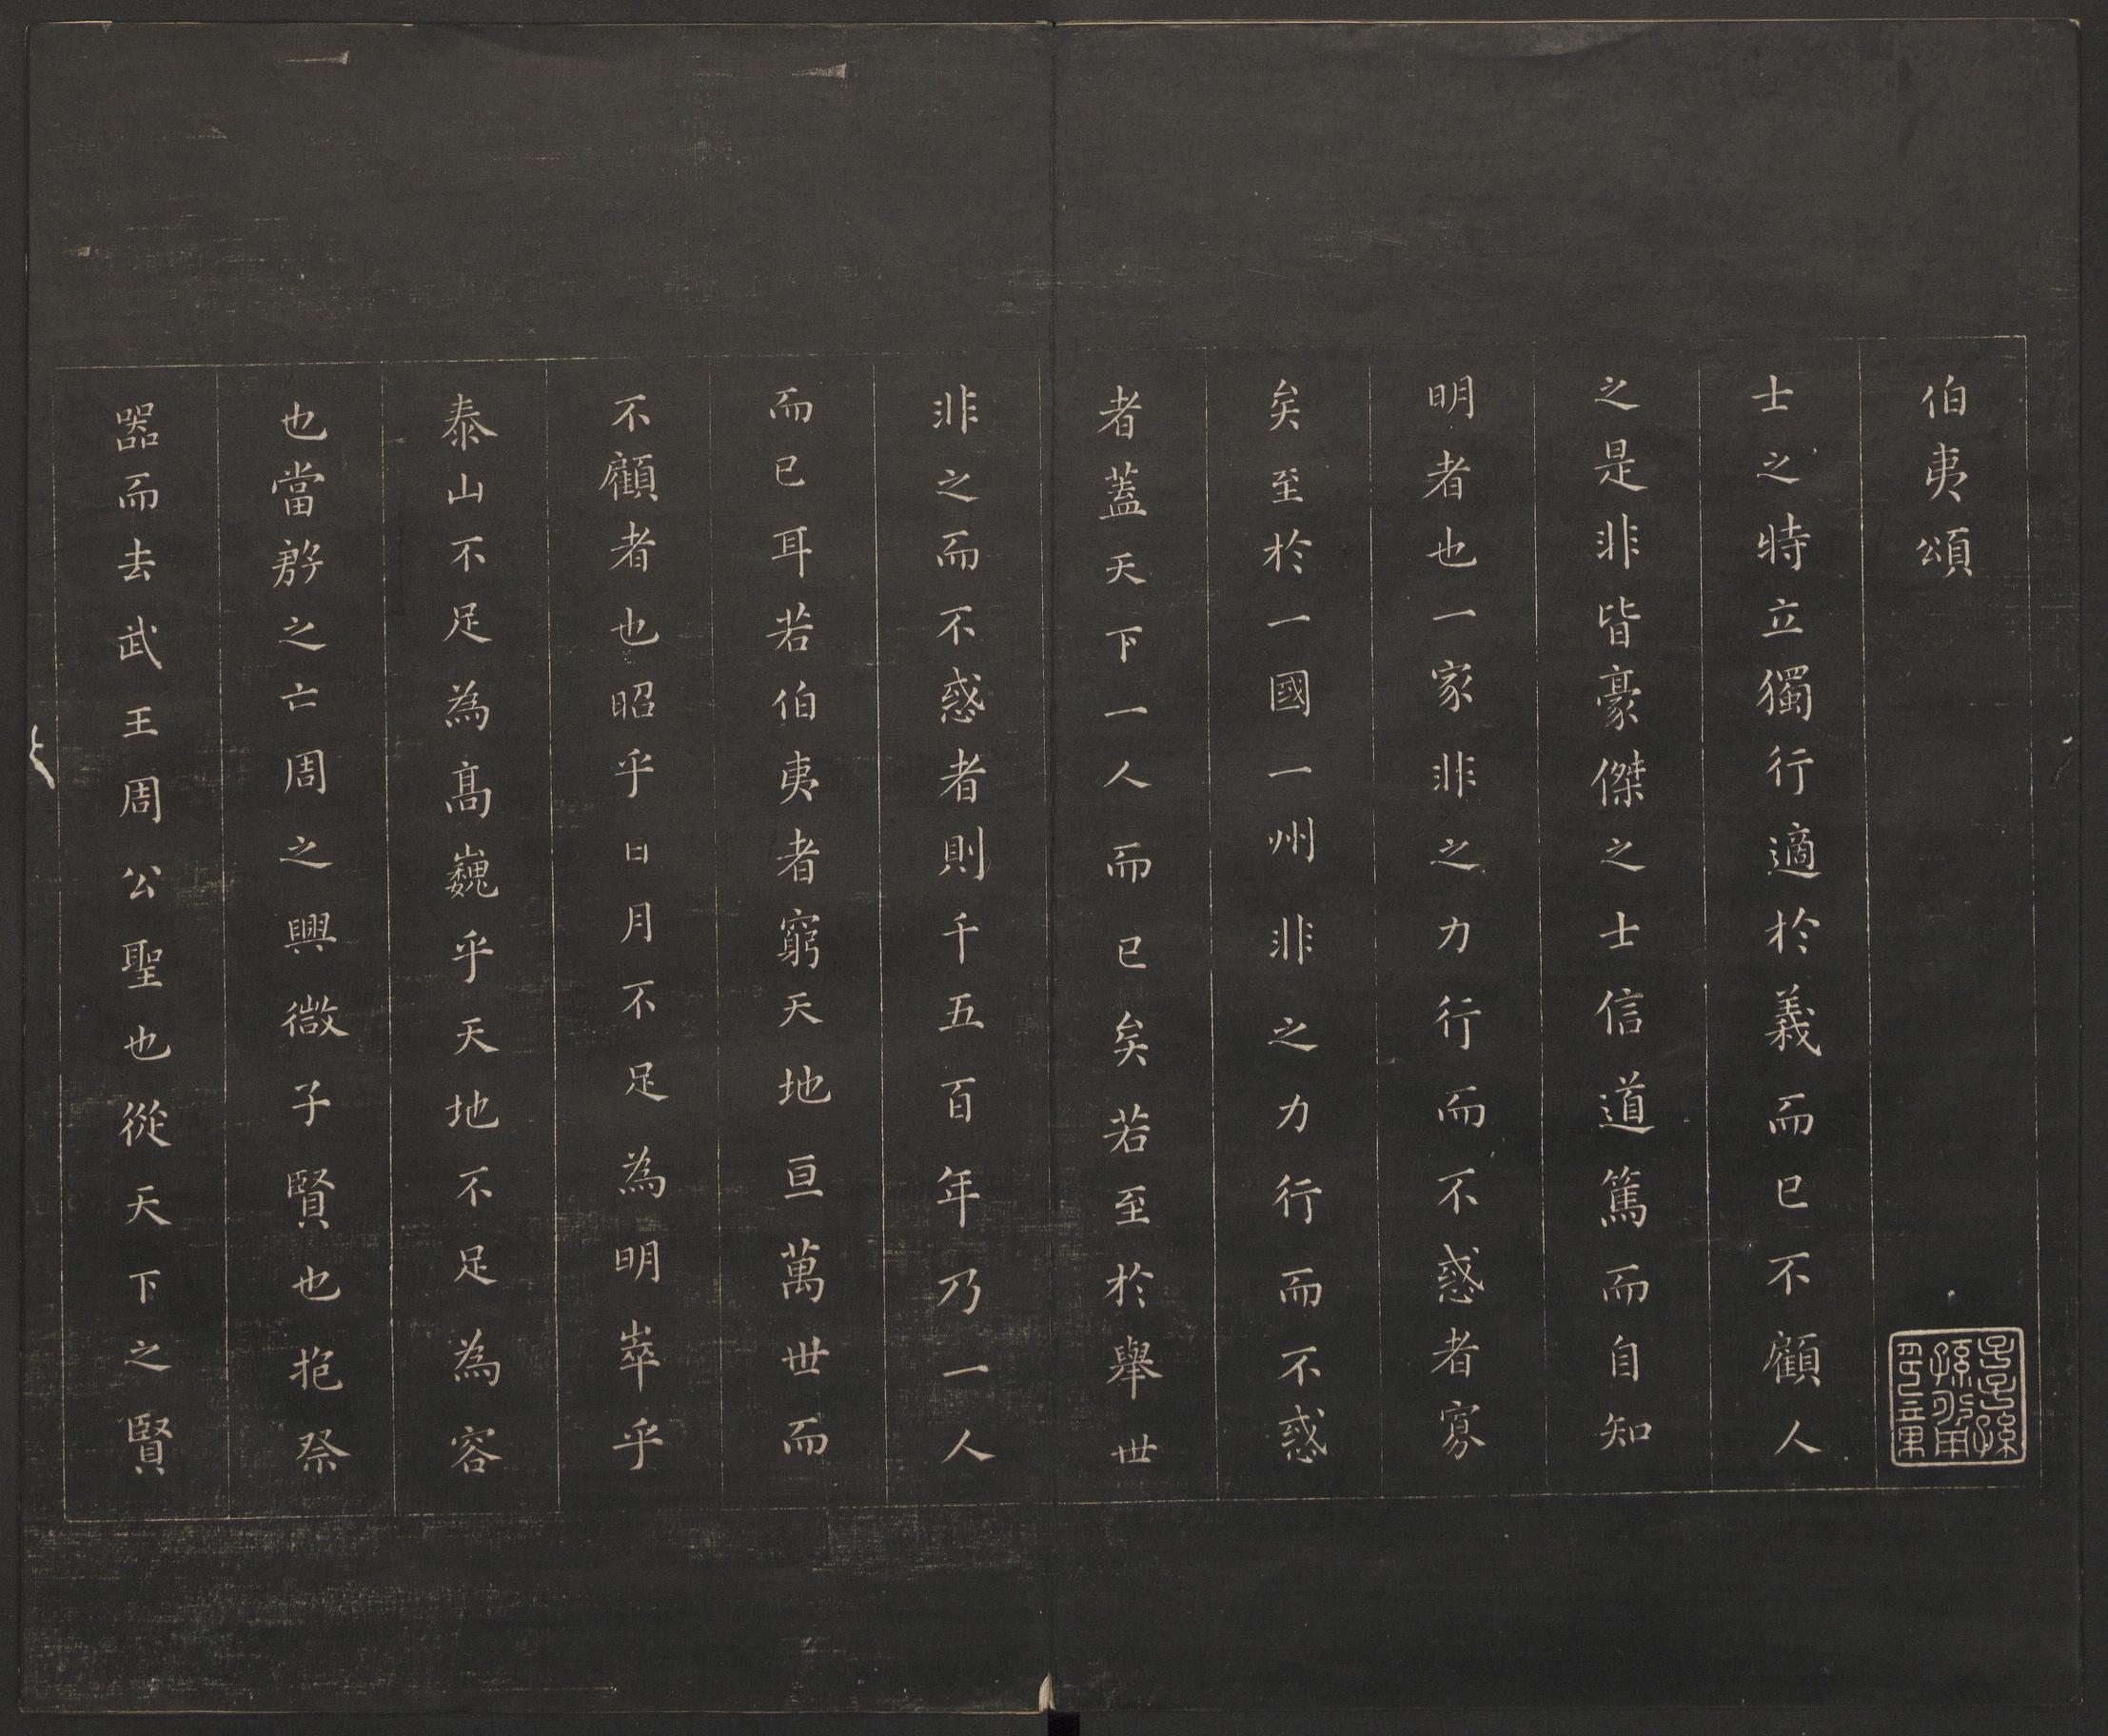 伯夷頌
士之特立獨行適於義而已不顧人
之是非皆豪傑之士信道篤而自知
明者也一家非之力行而不惑者寡
矣至於一國一州非之力行而不惑
者蓋天下一人而已矣若至於舉世
非之而不惑者則千五百年乃一人
而已耳若伯夷者窮天地亘萬世而
不顧者也昭乎日月不足為明崒乎
泰山不足為髙巍乎天地不足為容
也當殷之亡周之興微子賢也抱祭
器而去武王周公聖也從天下之賢